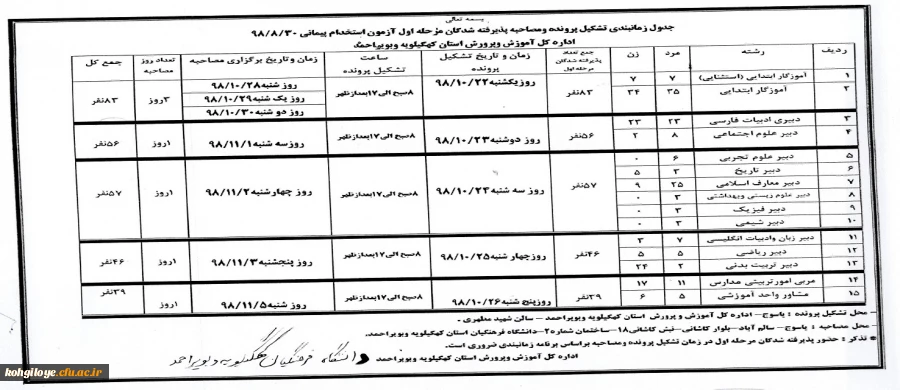 بسمه تعالی
جدول زمانبندی تشکیل پرونده ومصاحبه پذیرفته شدگان مرحله اول آزمون استخدام پیمانی ۹۸/۸/۳۰
اداره کل آموزش وپرورش استان کهگیلویه وبویراحمد
ردیف رشته مرد زن جمع تعداد پذیرفته شدگان مرحله اول زمان و تاریخ تشکیل پرونده ساعت تشکیل پرونده زمان وتاریخ برگزاری مصاحبه تعداد روز مصاحبه جمع کل
۱ آموزگار ابتدایی (استثنایی) ۷ ۷ ۸۳نفر روز یکشنبه ۹۸/۱۰/۲۲ ۸صبح الی ۱۷بعدازظهر روز شنبه ۹۸/۱۰/۲۸ ۳روز ۸۳نفر
۲ آموزگار ابتدایی ۳۵ ۳۴ روز یک شنبه ۹۸/۱۰/۲۹
روز دو شنبه ۹۸/۱۰/۳۰
۳ دبیری ادبیات فارسی ۲۳ ۲۳ ۵۶نفر روز دوشنبه ۹۸/۱۰/۲۳ ۸صبح الی ۱۷بعدازظهر روز سه شنبه ۹۸/۱۱/۱ ۱روز ۵۶نفر
۴ دبیر علوم اجتماعی ۸ ۲
۵ دبیر علوم تجربی ۶ ۰ ۵۷نفر روز سه شنبه ۹۸/۱۰/۲۴ ۸صبح الی ۱۷بعدازظهر روز چهارشنبه ۹۸/۱۱/۲ ۱روز ۵۷نفر
۶ دبیر تاریخ ۳ ۵
۷ دبیر معارف اسلامی ۲۵ ۹
۸ دبیر علوم زیستی وبهداشتی ۳ ۰
۹ دبیر فیزیک ۳ ۰
۱۰ دبیر شیمی ۳ ۰
۱۱ دبیر زبان وادبیات انگلیسی ۷ ۳ ۴۶نفر روزچهار شنبه ۹۸/۱۰/۲۵ ۸صبح الی ۱۷بعدازظهر روز پنجشنبه ۹۸/۱۱/۳ ۱روز ۴۶نفر
۱۲ دبیر ریاضی ۵ ۵
۱۳ دبیر تربیت بدنی ۲ ۲۴
۱۴ مربی امورتربیتی مدارس ۱۱ ۱۷ ۳۹نفر روزپنج شنبه ۹۸/۱۰/۲۶ ۸صبح الی ۱۷بعدازظهر روز شنبه ۹۸/۱۱/۵ ۱روز ۳۹نفر
۱۵ مشاور واحد آموزشی ۵ ۶
– محل تشکیل پرونده : یاسوج – اداره کل آموزش و پرورش استان کهگیلویه وبویراحمد – سالن شهید مطهری .
– محل مصاحبه : یاسوج – سالم آباد – بلوار کاشانی – نبش کاشانی۱۸ – ساختمان شماره۲ – دانشگاه فرهنگیان استان کهگیلویه وبویراحمد.
– تذکر : حضور پذیرفته شدگان مرحله اول در زمان تشکیل پرونده ومصاحبه براساس برنامه زمانبندی ضروری است .
اداره کل آموزش وپرورش استان کهگیلویه وبویراحمد
دانشگاه فرهنگیان کهگیلویه و بویراحمد
kohgiloye.cfu.ac.ir